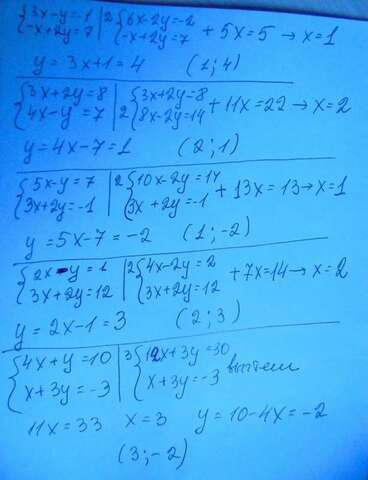 {3x-y=-1 | 2 {6x-2y=-2
{-x+2y=7 | {-x+2y=7 + 5x=5 → x=1
y=3x+1=4 (1;4)
{3x+2y=8 | {3x+2y=8
{4x-y=7 | 2 {8x-2y=14 + 11x=22 → x=2
y=4x-7=1 (2;1)
{5x-y=7 | 2 {10x-2y=14
{3x+2y=-1 | {3x+2y=-1 + 13x=13 → x=1
y=5x-7=-2 (1;-2)
{2x-y=1 | 2 {4x-2y=2
{3x+2y=12 | {3x+2y=12 +7x=14 → x=2
y=2x-1=3 (2;3)
{4x+y=10 | 3 {12x+3y=30
{x+3y=-3 | {x+3y=-3 вычтем
11x=33 x=3 y=10-4x=-2
(3;-2)